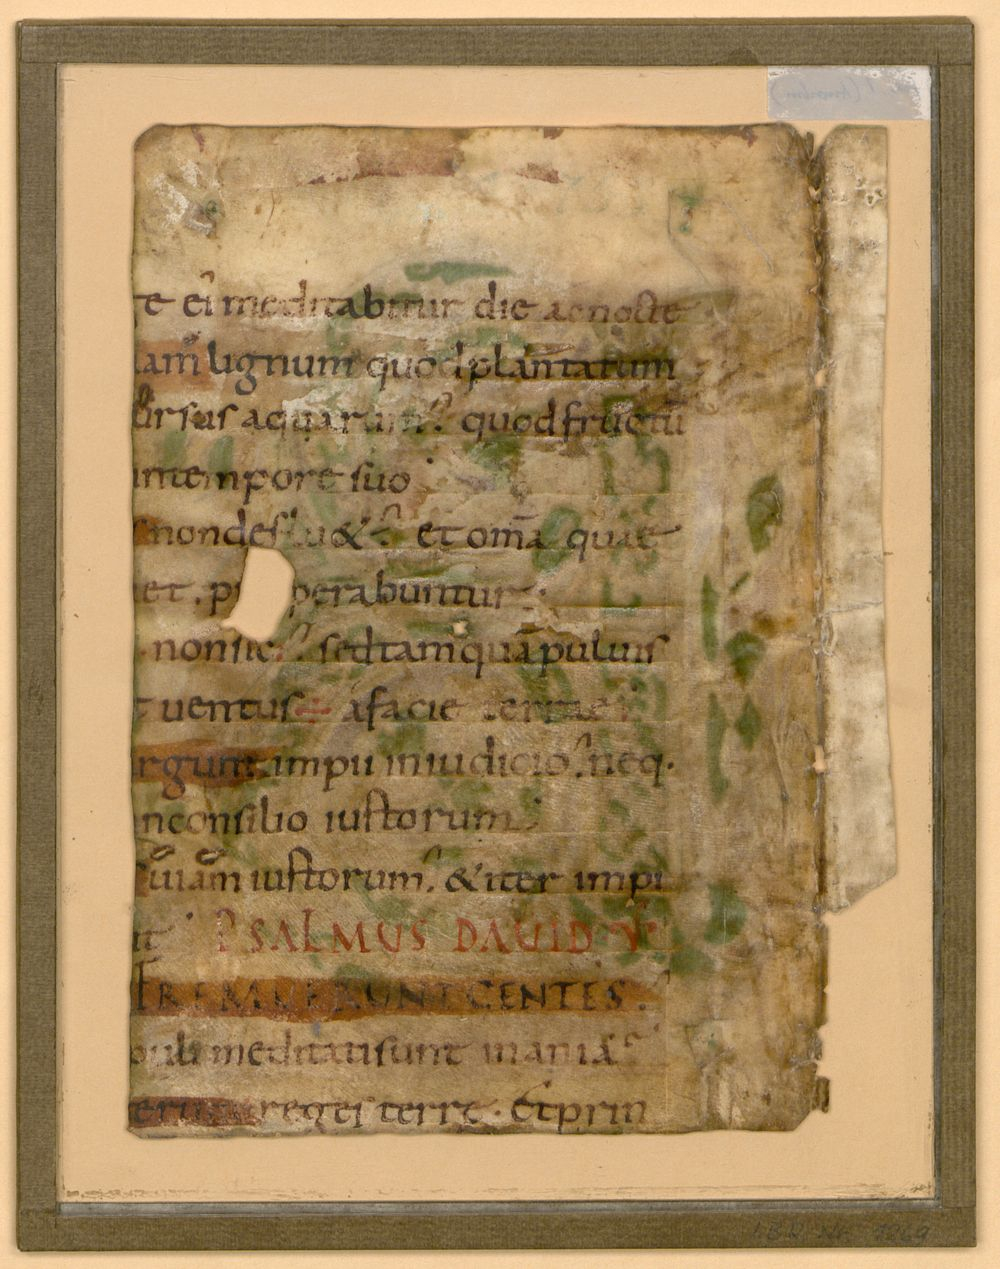 ge ei meditabitur die ac nocte
quam lignum quod plantatum
cursus aquarum. quod fructū
in tempore suo
s non defluet. et om̄a quae
et. p perabuntur
non sic. sed tamquā puluis
t uentus a facie terrae
rgunt impii in iudicio. neq.
n consilio iustorum
uiam iustorum. & iter impi
it PSALMUS DAUID
FREMUERUNT GENTES.
puli meditati sunt inania
erunt reges terrę. Et prin